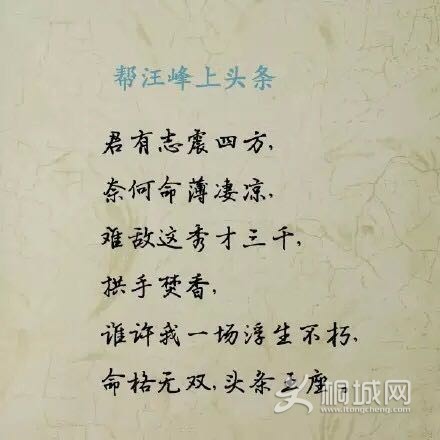 帮汪峰上头条
君有志震四方,
奈何命薄凄凉,
难敌这秀才三千,
拱手焚香,
谁许我一场浮生不朽,
命格无双,头条王座。
桐城网
www.itongcheng.com